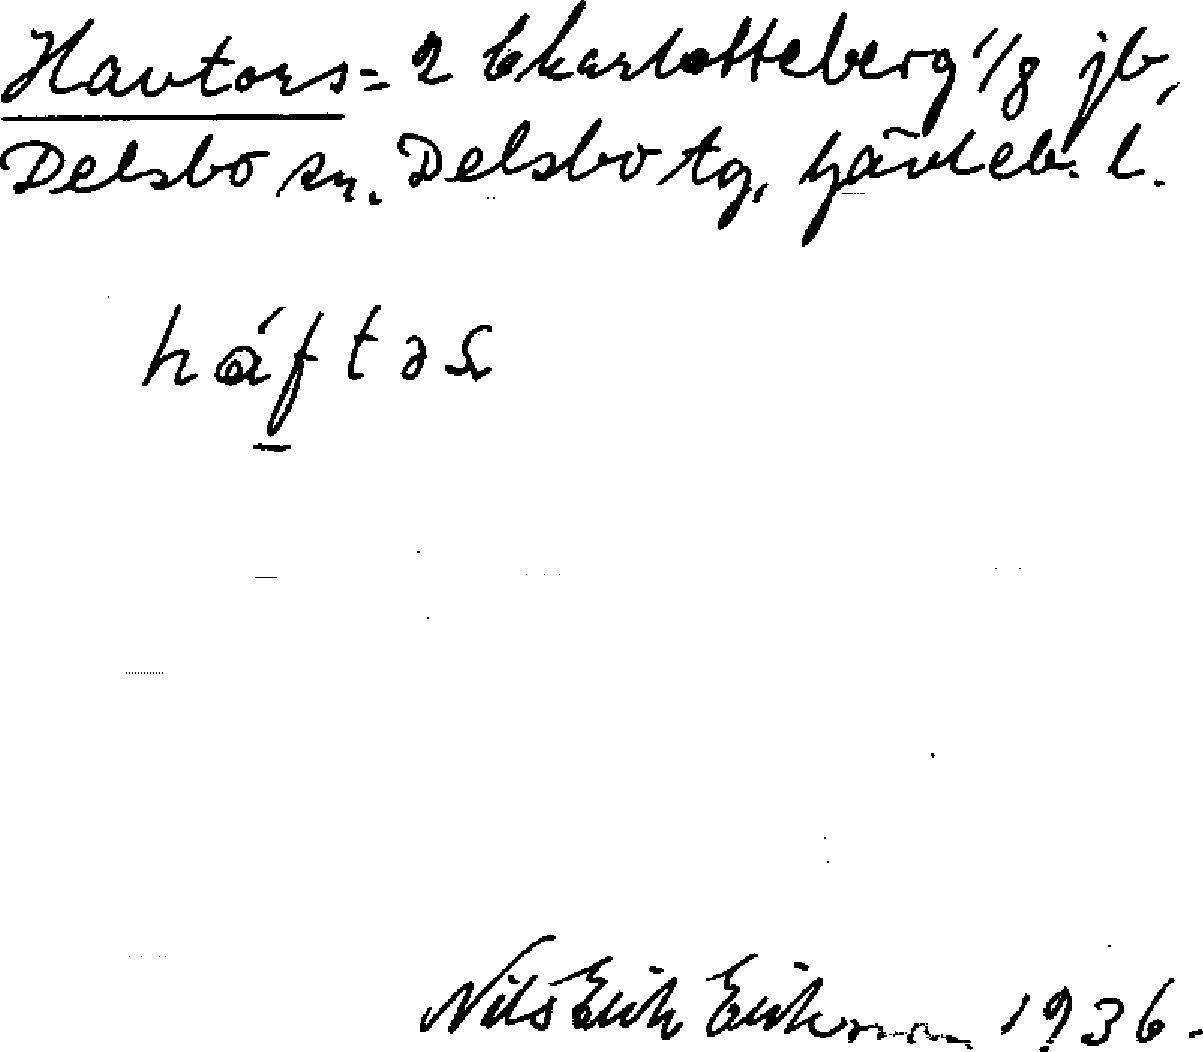 Havtors = 2 Charlotteberg 1/8 jb,
Delsbo sn. Delsbo tg, Gävleb. l.
háftəs
Nils Erik Erikman 1936.